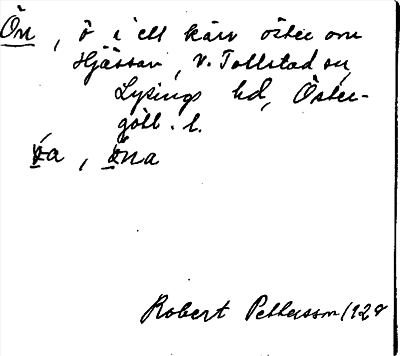 Ön, ö i ett kärr öster om
Hjässan, V. Tollstad sn,
Lysings hd, Öster-
götl. l.
öa, öna
Robert Pettersson 1928